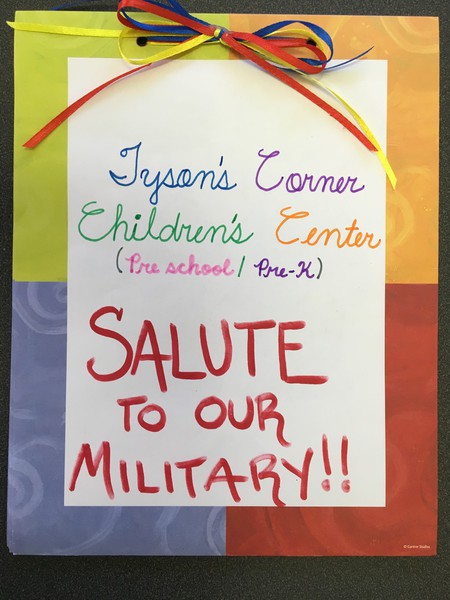 Tyson's Corner
Children's Center
(Pre school / Pre-K)
SALUTE
TO OUR
MILITARY!!